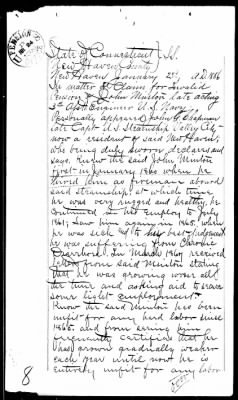 State of Connecticut } S.S.
New Haven County
New Haven January 23d, A.D. 1886
In matter of Claim for Invalid
Pension of John Minton late acting
3d Asst Engineer U.S. Navy
Personally appeared John G. Chapman
late Capt US Steamship
now a resident of said New Haven,
who being duly sworn declares and
says, knew the said John Minton
first in January 1860 when he
hired him as fireman aboard
said steamship at which time
he was very rugged and healthy, he
continued in his employ to July
1861; saw him again in 1865, when
he was sick and to his best judgement
he was suffering from Chronic
Diarrhoea. In March 1869 received
letter from said Minton stating
that he was growing worse all
the time and asking aid to secure
some light employment.
I know the said Minton has been
unfit for any hard labor since
1865 and from seeing him
frequently certifies that he
has grown gradually weaker
each year until now he is
entirely unfit for any labor
8